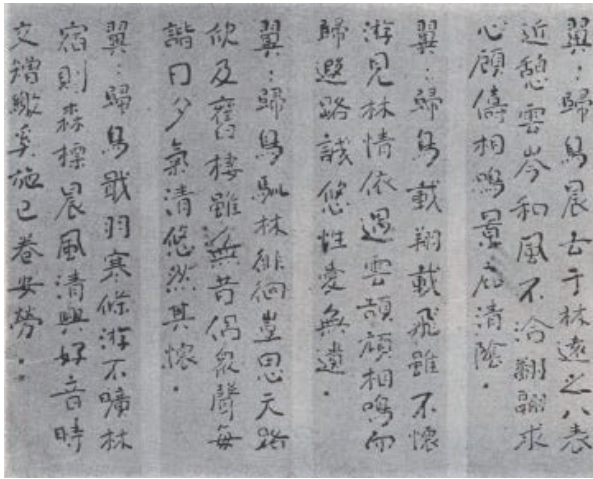 翼:歸鳥晨去于林遠之八表
近憩雲岑和風不洽翻翮求
心顧儔相鳴景庇清陰.
翼:歸鳥載翔載飛雖不懷
游見林情依遇雲頡頏相鳴而
歸遐路誠悠性愛無遺.
翼:歸鳥馴林徘徊豈思天路
欣及舊棲雖無昔侶眾聲每
諧日夕氣清悠然其懷.
翼:歸鳥戢羽寒條游不曠林
宿則森標晨風清興好音時
交矰繳奚施已卷安勞..